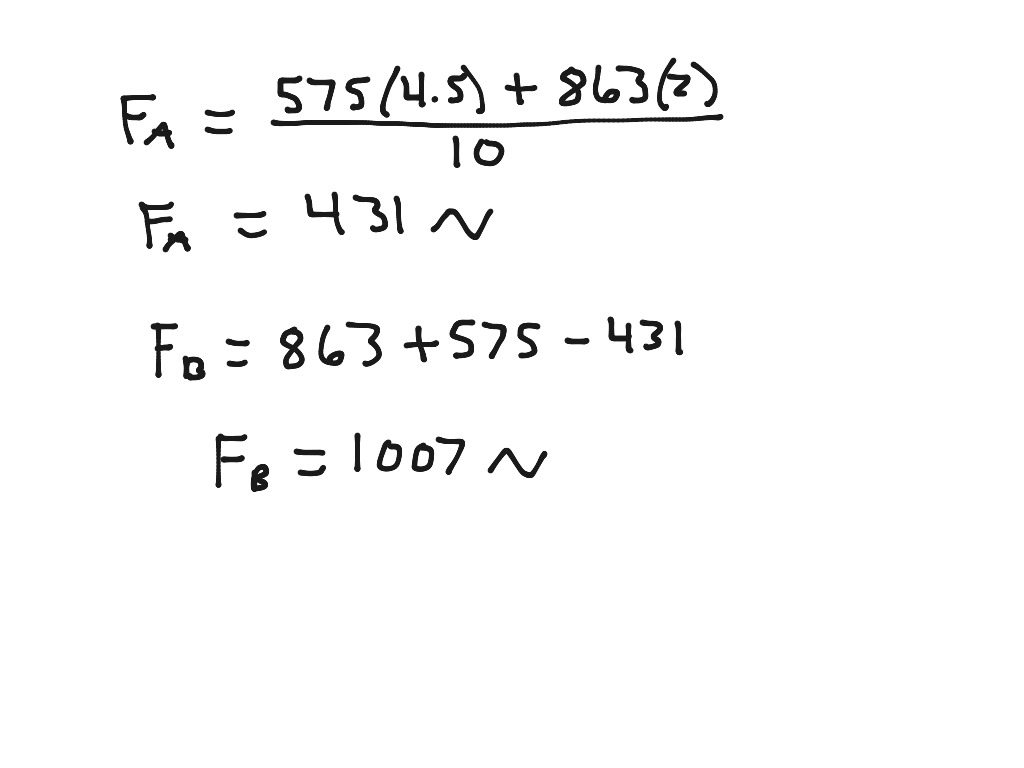 F_A = 575(4.5) + 863(2) / 10
F_A = 431 N
F_B = 863 + 575 - 431
F_B = 1007 N